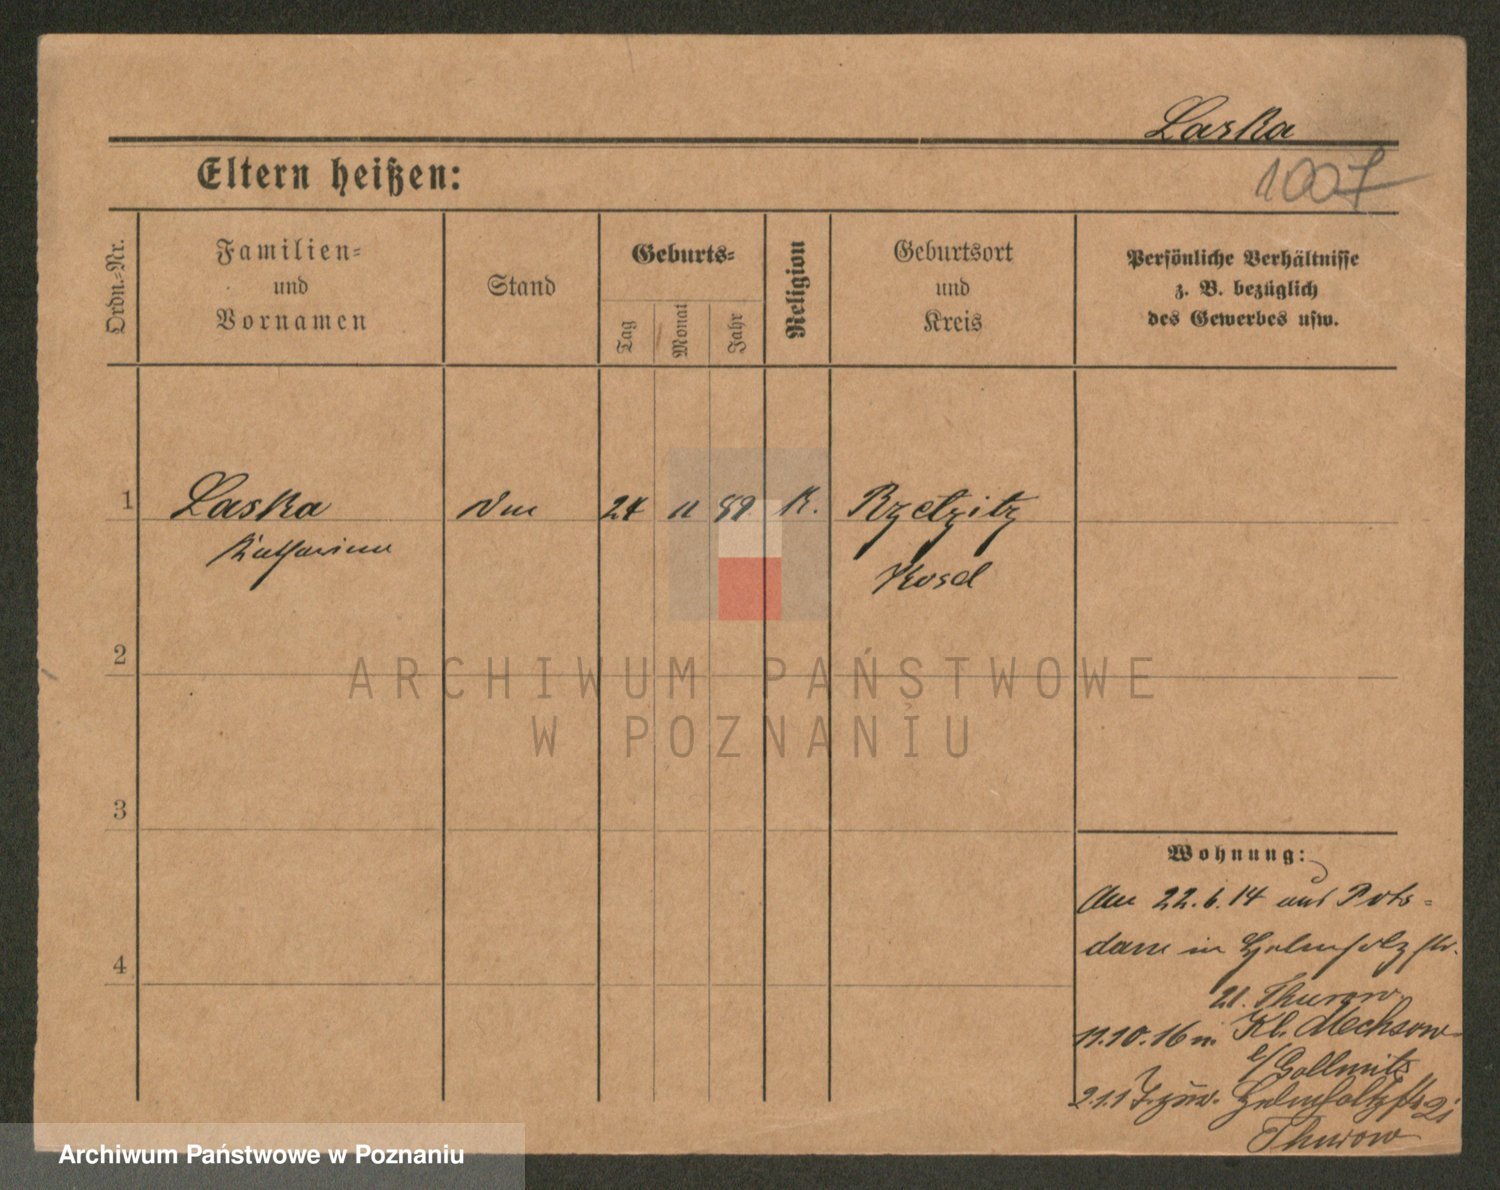 Laska
1007
Eltern heißen:
Ordn.-Nr.
Familien-
und
Vornamen
Stand
Geburts-
Tag
Monat
Jahr
Religion
Geburtsort
und
Kreis
Persönliche Verhältnisse
z. B. bezüglich
des Gewerbes usw.
1
Laska
Katharina
24 11 89 K.
Rzetzitz
Kosel
2
ARCHIWUM PAŃSTWOWE
W POZNANIU
3
4
Wohnung:
Am 22.6.14 aus Pots-
dam in Helmholzstr.
21. Thurow
11.10.16 n. Kl. Mechsow
b/Gollmitz
2.1.17 zur. Helmholtzstr 21
Thurow
Archiwum Państwowe w Poznaniu